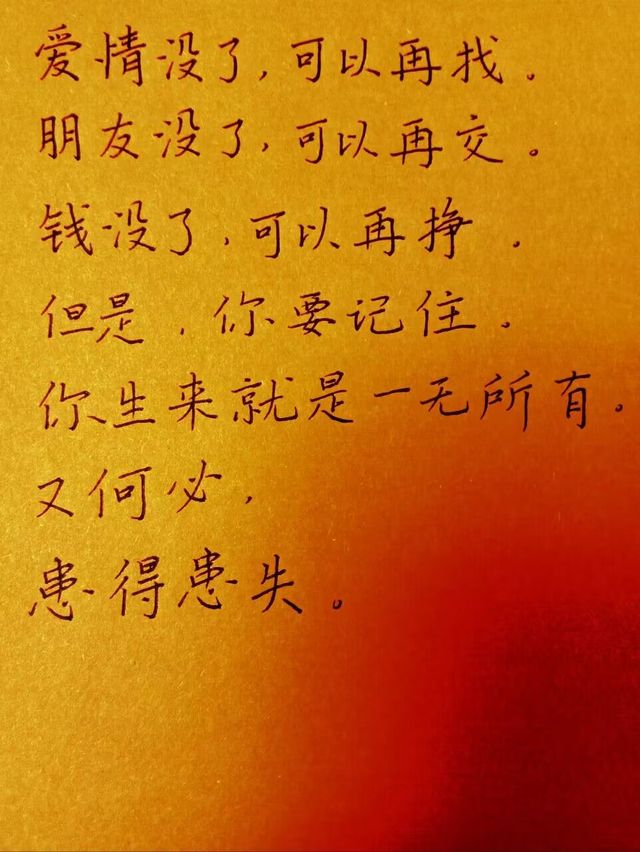 爱情没了,可以再找。
朋友没了,可以再交。
钱没了,可以再挣.
但是,你要记住。
你生来就是一无所有。
又何必,
患得患失。